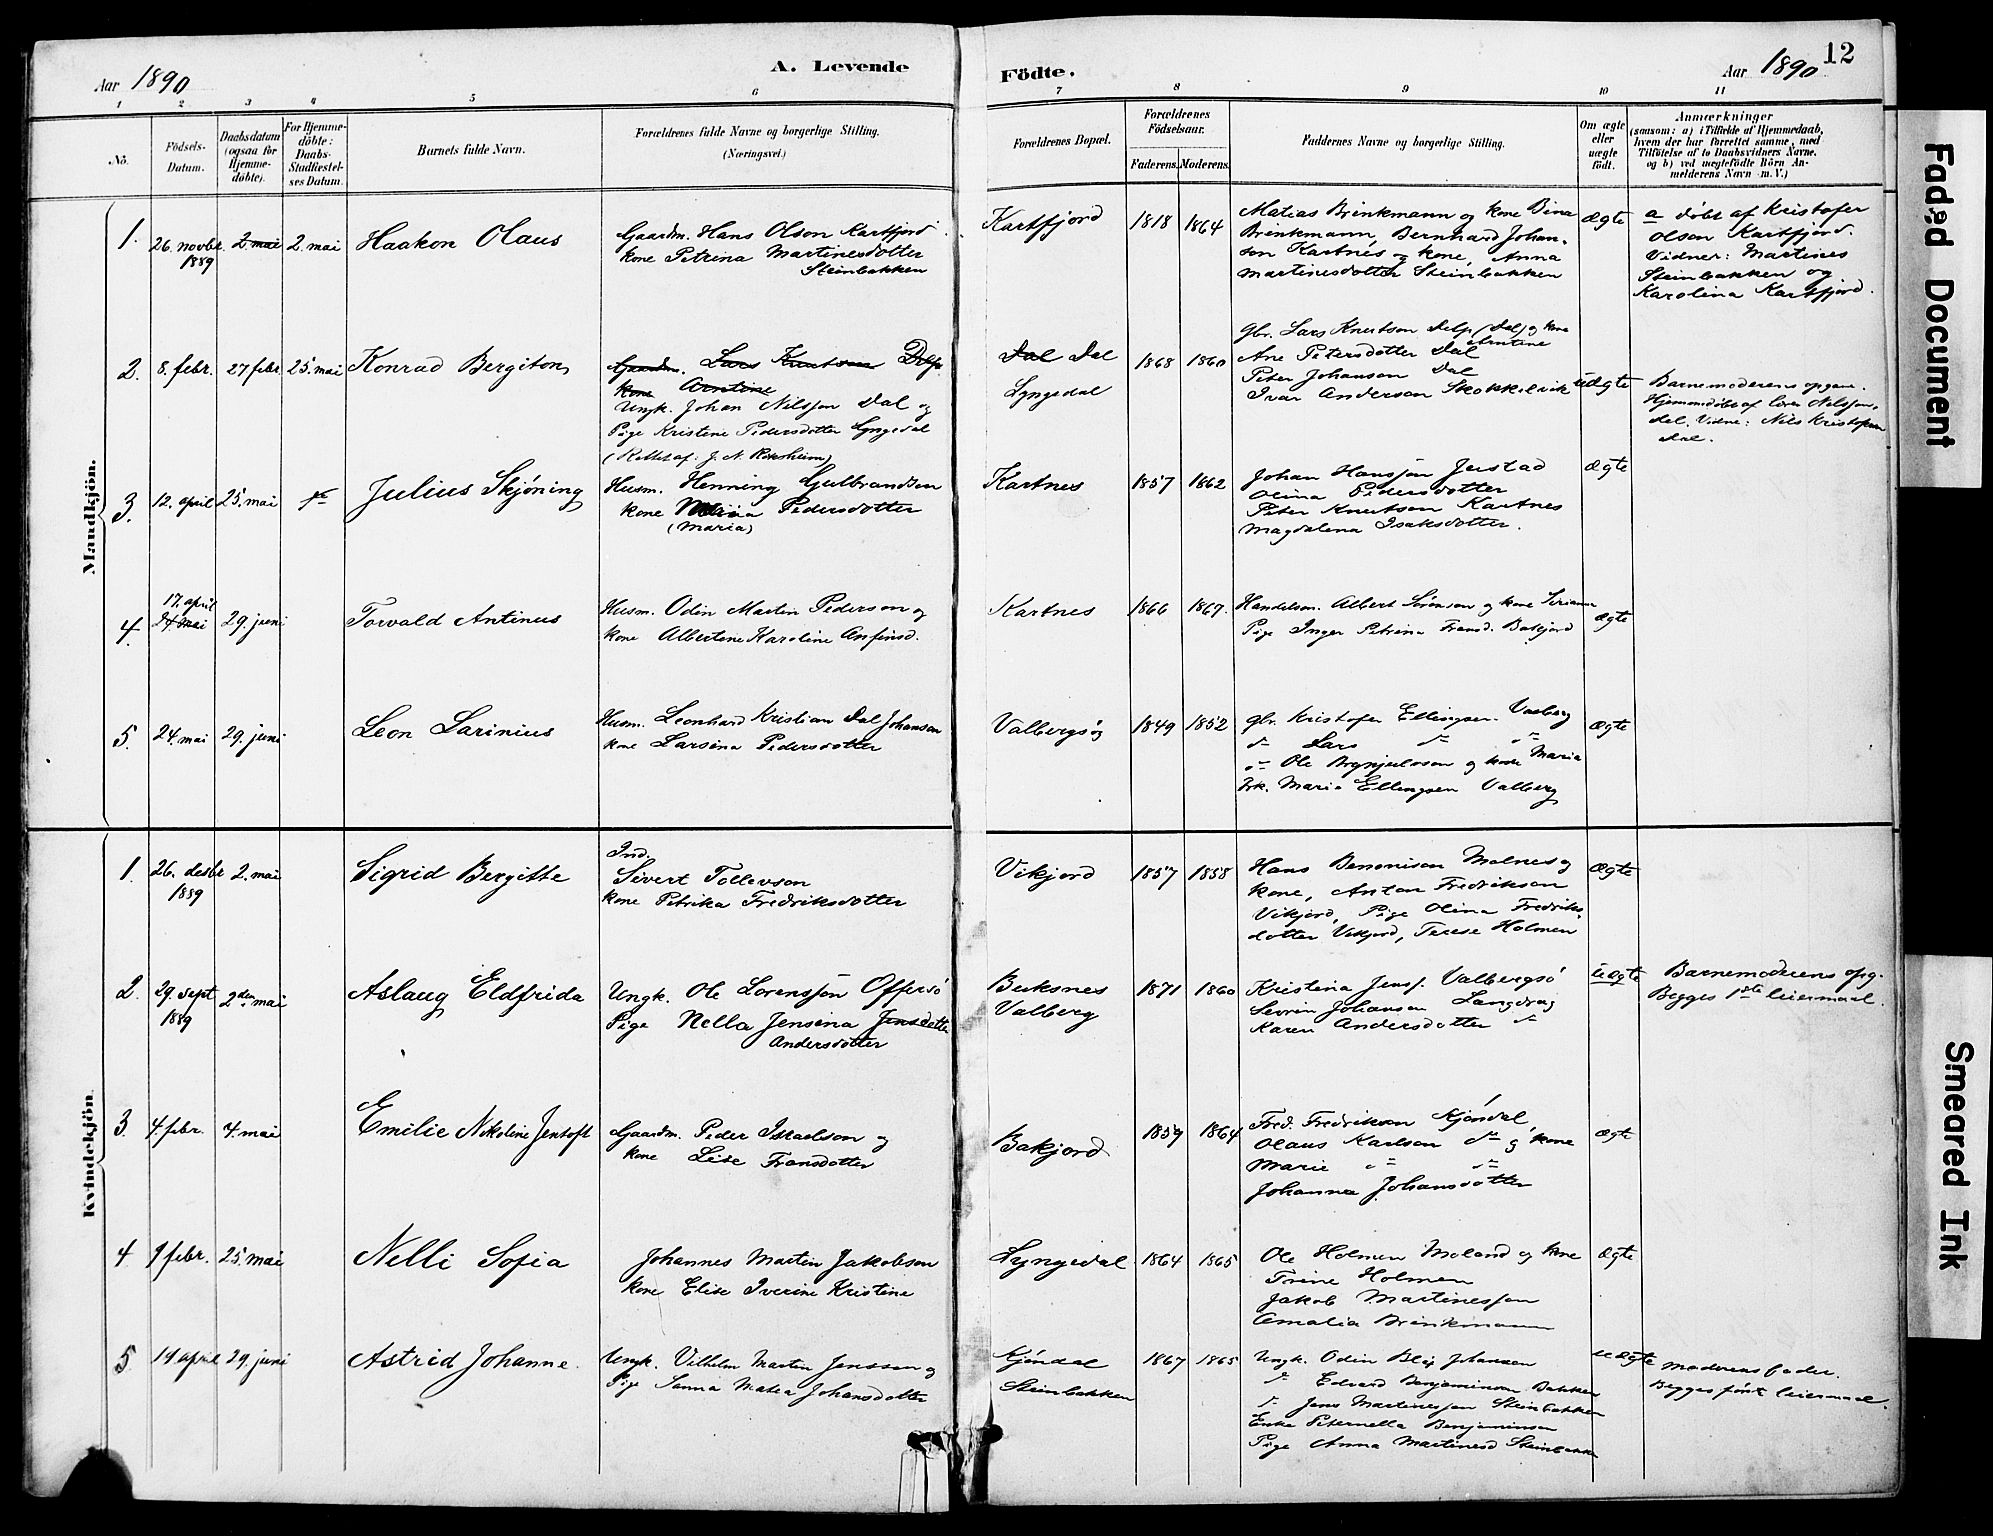 Aar 1890
A. Levende
Födte.
Aar 1890
12
1 2 3 4 5 6 7 8 9 10 11
No.
Födsels-
Datum.
Daabsdatum
(ogsaa for
Hjemme-
döbte).
For Hjemme-
döbte:
Daabs-
Stadfæstel-
ses Datum.
Barnets fulde Navn.
Forældrenes fulde Navne og borgerlige Stilling.
(Næringsvei.)
Forældrenes Bopæl.
Forældrenes
Födselsaar.
Faderens. Moderens.
Faddernes Navne og borgerlige Stilling.
Om ægte
eller
uægte
födt.
Anmærkninger
(saasom: a) i Tilfælde af Hjemmedaab,
hvem der har forrettet samme, med
Tilföielse af to Daabsvidners Navne,
og b) ved uægtefödte Börn An-
melderens Navn m. V.)
Mandkjön.
1.
26. novbr.
1889
2. mai
2. mai
Haakon Olaus
Gaardm. Hans Olson Kartfjord
kone Petrina Martinesdotter
Steinbakken
Kartfjord
1818
1864
Matias Brinkmann og kone Dina
Brinkmann, Bernhard Johan-
son Kartnes og kone, Anna
Martinesdotter Steinbakken
ægte
a döbt af Kristofer
Olson Kartfjord.
Vidner: Martines
Steinbakken og
Karolina Kartfjord.
2.
8. febr.
27 febr.
25. mai
Konrad Bergiton
Gaardm. Lars Knutson Delp
kone Arntine
Ungk. Johan Nilsson Dal og
Pige Kristine Pedersdotter Lyngedal
Dal Dal
Lyngedal
1868
1860
Gbr. Lars Knutson Delp (Dal) og kone
Arntine
Ane Petersdotter Dal
Peter Johanson Dal
Ivar Anderson Skokkelvik
uægte
Barnemoderens opgave.
Hjemmedöbt af Nilsson,
dal. Vidne: Nils Kristofersen
dal.
3.
12. april
25. mai
Julius Skjöning
Husm. Henning Gulbrandsen
kone Pedersdotter
(Maria)
Kartnes
1857
1862
Johan Hansson Jerstad
Olina Pedersdotter
Peter Knutson Kartnes
Magdalena Isaksdotter.
ægte
4.
17. april
24 mai
29. juni
Torvald Antinus
Husm. Odin Martin Pederson og
kone Albertine Karoline Anfinsd.
Kartnes
1866
1867.
Handelsm. Albert Sörenson og kone
Pige Inger Petrina Fransd. Bakjord
ægte
5.
24. mai
29. juni
Leon Larinius
Husm. Leonhard Kristian Dal Johanson
kone Larsina Pedersdotter
Valbergsö
1849
1852
gbr. Kristofer Ellingsen Valberg
d= Lars d= d=
d= Ole Brynjulvson og kone Maria
Maria Ellingsen Valberg
ægte
Kvindekjön.
1.
26. desbr
1889
2. mai
Sigrid Bergitte
Ind.
Sivert Tollevson
kone Petrika Fredriksdotter
Vikjord
1857
1858
Hans Benonison Molnes og
kone, Anton Fredrikson
Vikjord, Pige Olina Fredriks-
dotter Vikjord, Terese Holmen
ægte
2.
29. sept
1889
2den mai
Aslaug Eldfrida
Ungk. Ole Lorensson Offersö
Pige Nella Jensina Jensdotter
Andersdotter
Buksnes
Valberg
1871
1860
Kristina Jenss. Valbergsö
Sevrin Johanson Langdrag
Karen Andersdotter d=
uægte
Barnemoderens opg.
Begges 1ste leiermaal.
3.
4 febr.
4. mai
Emilie Nikoline Jentoft
Gaardm. Peder Israelson og
kone Lise Fransdotter
Bakjord
1859
1864
Fred. Fredrikson Kjöndal,
Olaus Karlson d= og kone
Marie d= d=
Johanna Johansdotter
ægte
4
9 febr.
25. mai
Nelli Sofia
Johannes Martin Jakobson
kone Elise Iverine Kristine
Lyngedal
1864
1865
Ole Holmen Moland og kone
Trine Holmen
Jakob Martinesson
Amalia Brinkmann
ægte
5
14 april
29. juni
Astrid Johanne.
Ungk. Vilhelm Martin Jensson og
Pige Sanna Matea Johansdotter
Kjöndal
Steinbakken
1867
1865
Ungk. Odin Johanson
d= Edvard Benjaminson Bakken
d= Jens Martinesson Steinbakken
Enke Peternella Benjaminson
Pige Anna Martinesd Steinbakken
uægte
Moderens fader.
Begges förste leiermaal.
Faded Document
Smeared Ink